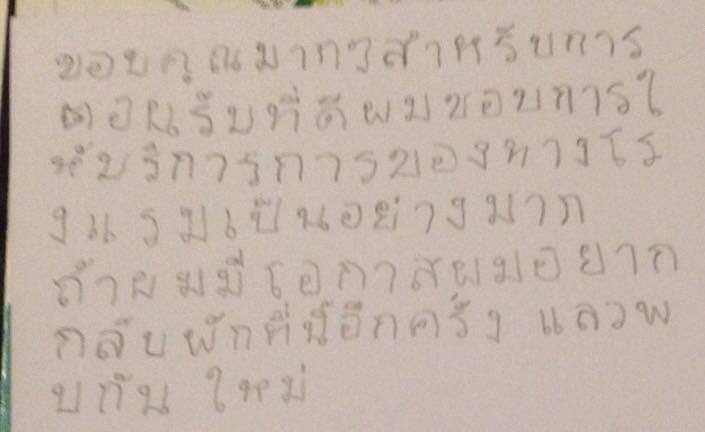 ขอบคุณมากๆสำหรับการ
ตอนรับที่ดีผมชอบการใ
ห้บริการการของทางโร
งแรมเป็นอย่างมาก
ถ้าผมมีโอกาสผมอยาก
กลับพักที่นี้อีกครั้ง แลวพ
บกัน ใหม่